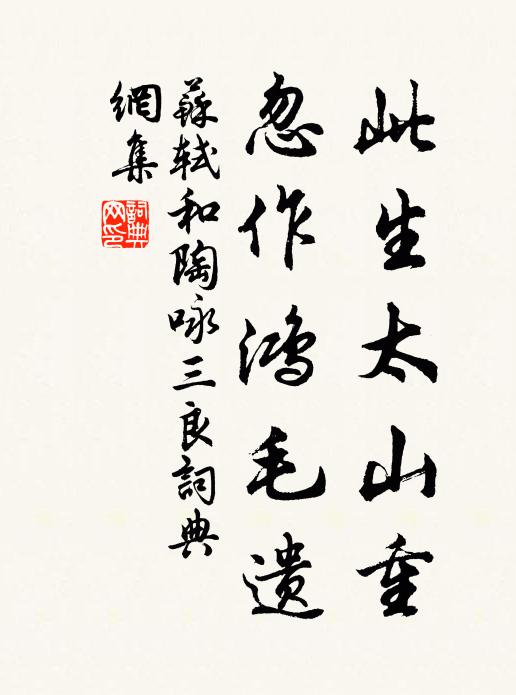 此生太山重
忽作鸿毛遗
蘇軾和陶咏三良詞典
網集
詞典网印